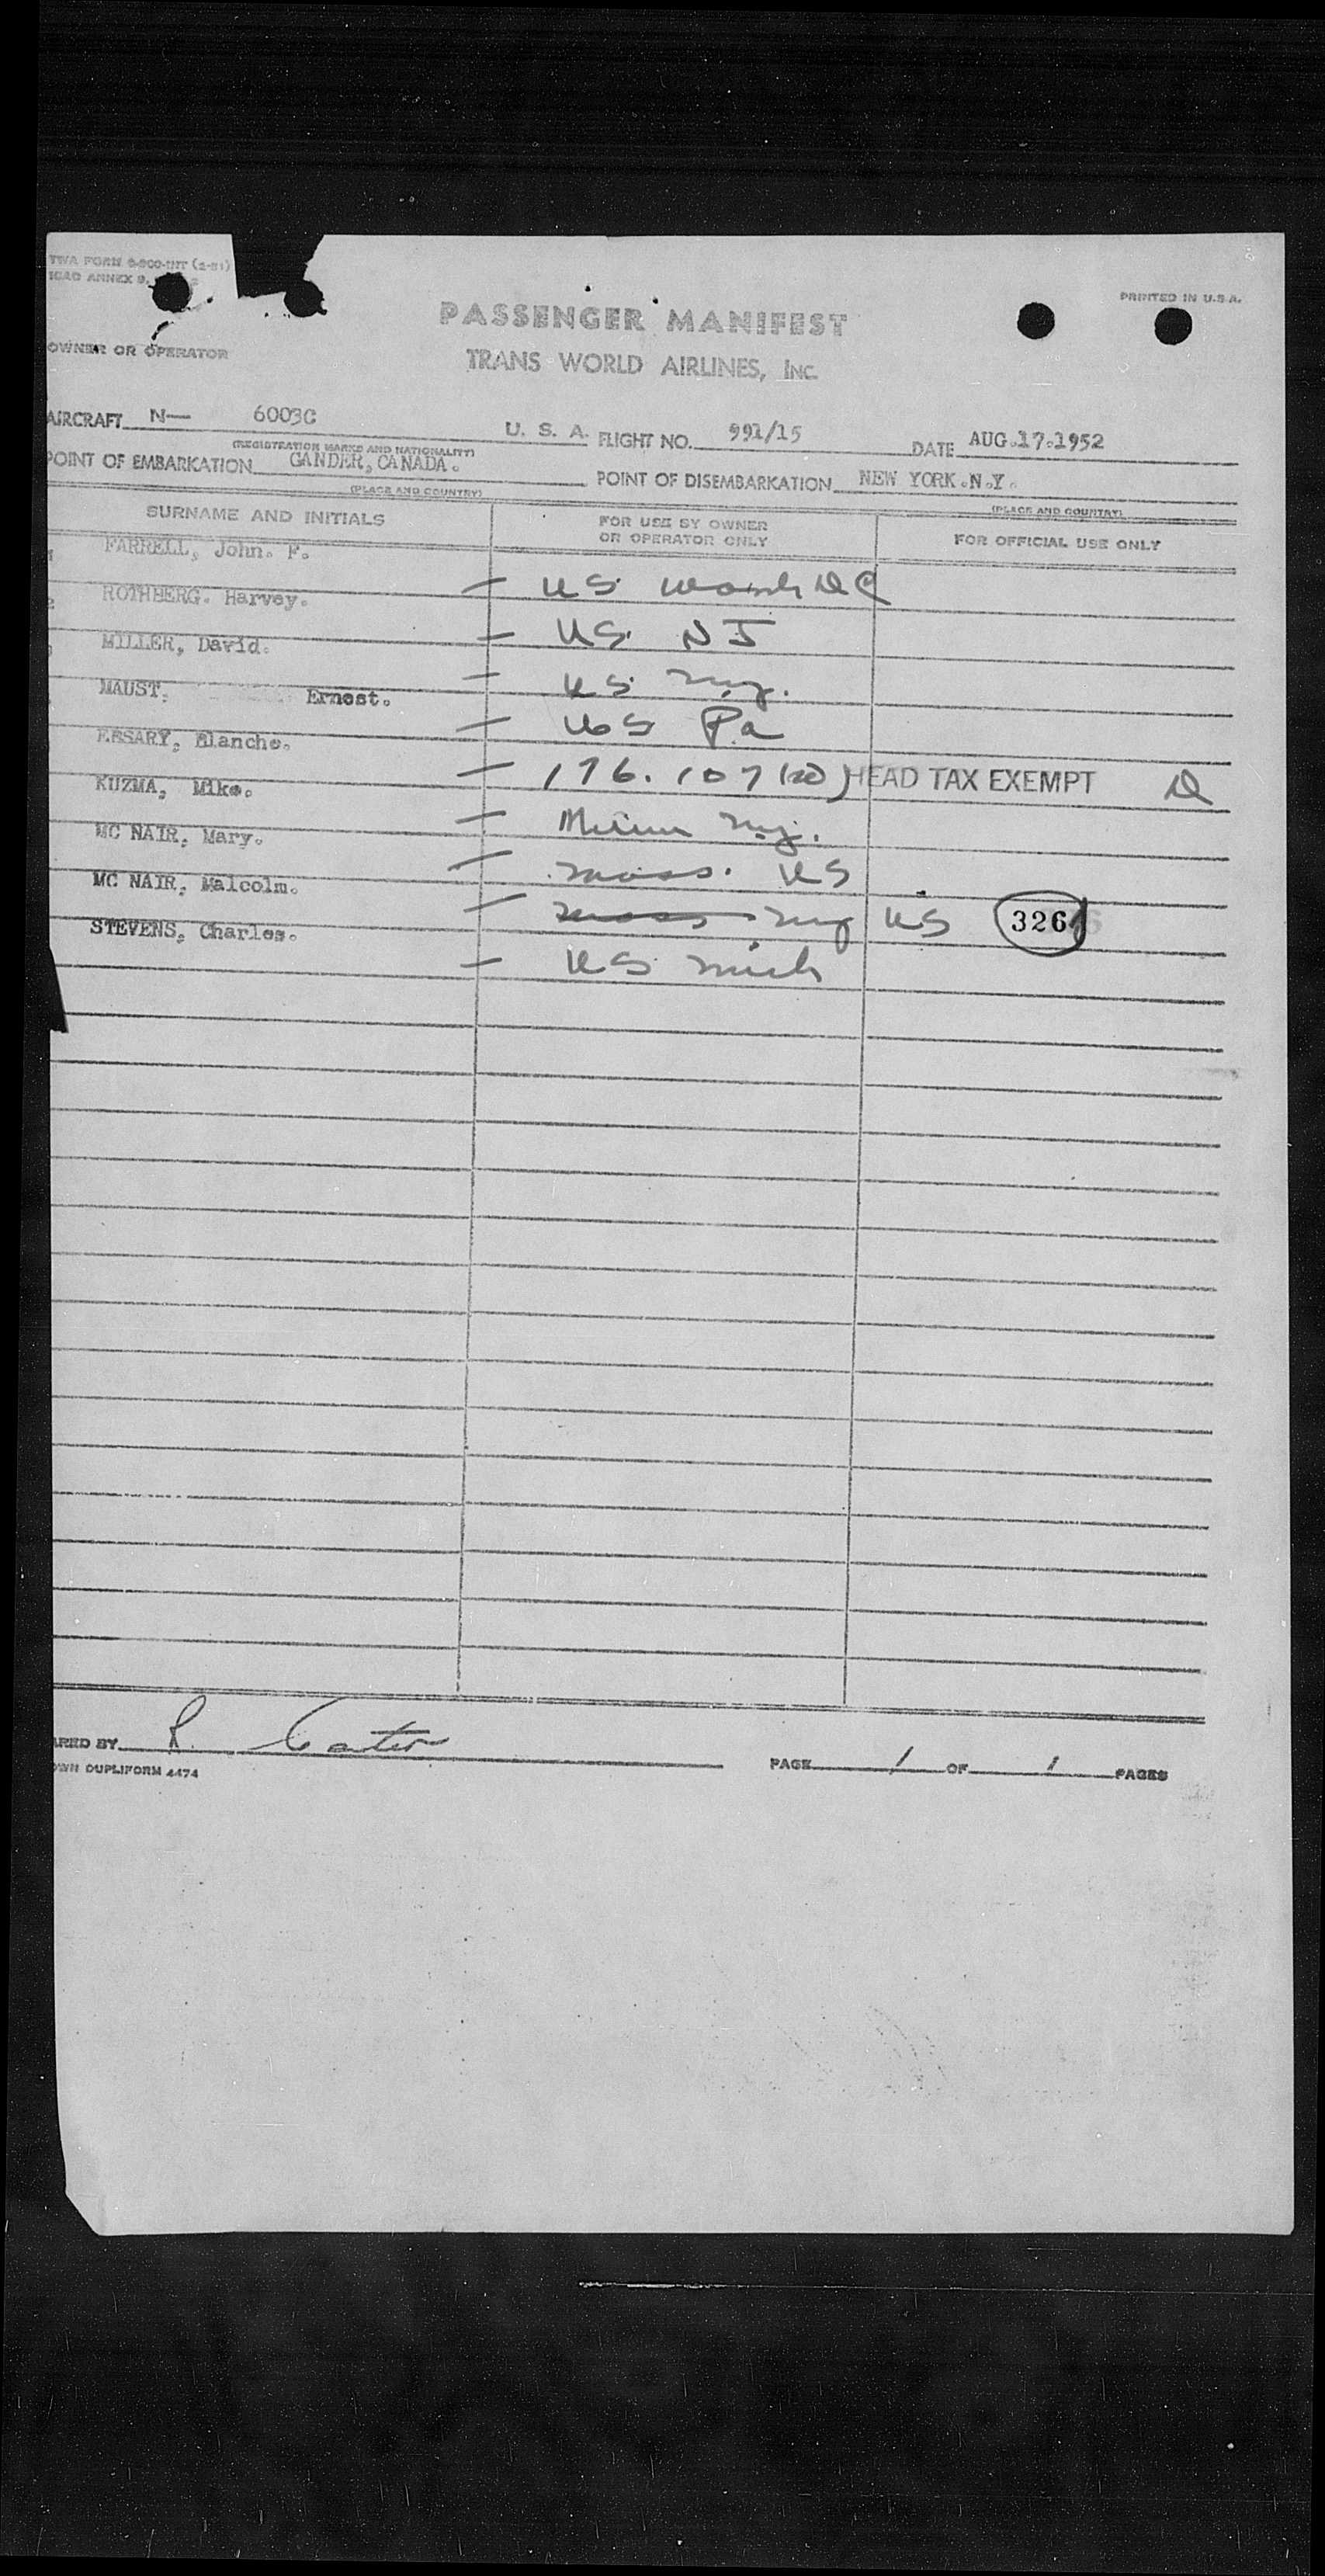 TWA FORM
ICAO ANNEX 9,
PRINTED IN U.S.A.
PASSENGER MANIFEST
OWNER OR OPERATOR
TRANS WORLD AIRLINES, INC.
AIRCRAFT N— 6003C U. S. A. FLIGHT NO. 991/15 DATE AUG.17.1952
(REGISTRATION MARKS AND NATIONALITY)
POINT OF EMBARKATION GANDER, CANADA. POINT OF DISEMBARKATION NEW YORK.N.Y.
(PLACE AND COUNTRY) (PLACE AND COUNTRY)
SURNAME AND INITIALS FOR USE BY OWNER OR OPERATOR ONLY FOR OFFICIAL USE ONLY
FARRELL, John. F. — US Wash DC
ROTHBERG. Harvey. — US NJ
MILLER, David. — US NY.
MAUST, Ernest. — US Pa
ESSARY, Blanche. — 176.107 HEAD TAX EXEMPT
KUZMA, Mike. — NY.
MC NAIR, Mary. — Mass. US
MC NAIR, Malcolm. — Mass NY US 326
STEVENS, Charles. — US Mich
ARED BY R. Carter PAGE 1 OF 1 PAGES
OWN DUPLIFORM 4474